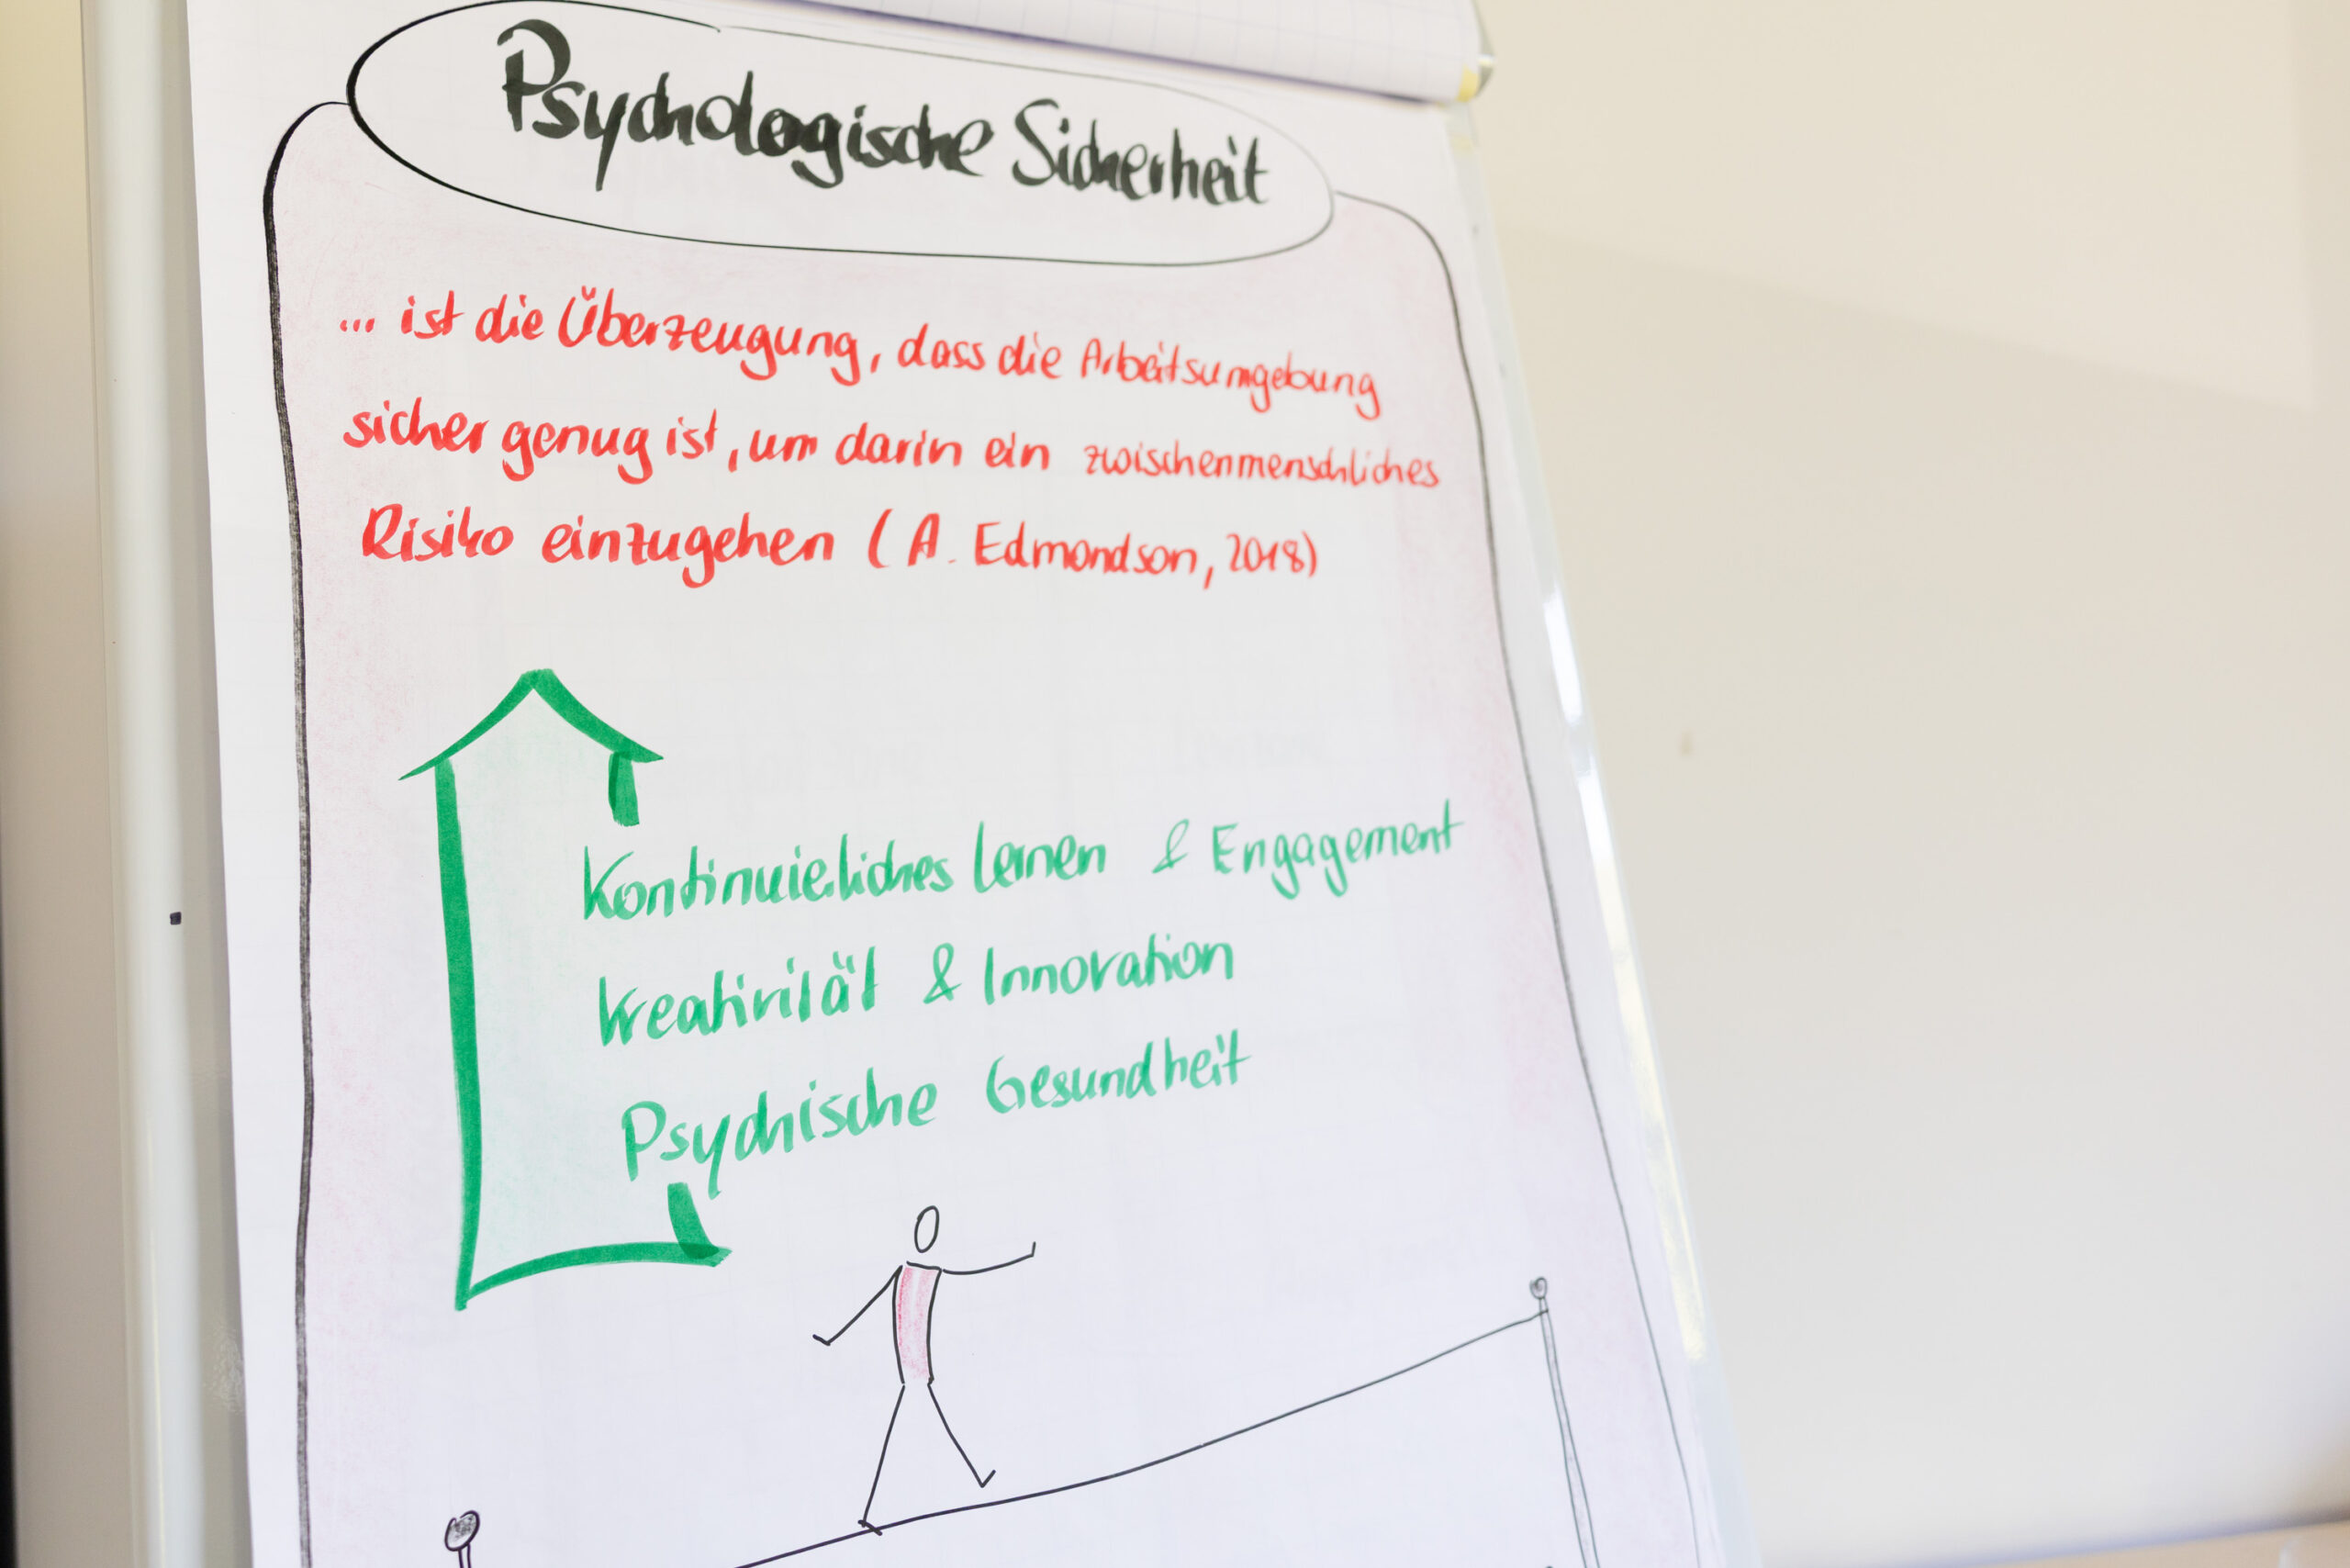 Psychologische Sicherheit
... ist die Überzeugung, dass die Arbeitsumgebung
sicher genug ist, um darin ein zwischenmenschliches
Risiko einzugehen (A. Edmondson, 2018)
Kontinuierliches lernen & Engagement
Kreativität & Innovation
Psychische Gesundheit